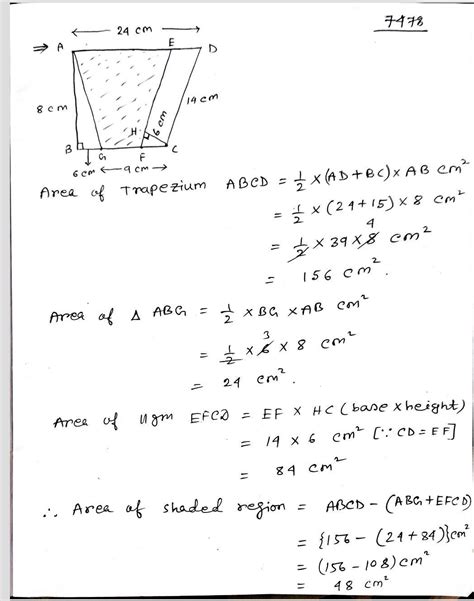 7478
⇒ A 24 cm E D
8 cm
14 cm
H 6 cm
B G F C
6 cm 9 cm
Area of Trapezium ABCD = 1/2 × (AD + BC) × AB cm²
= 1/2 × (24 + 15) × 8 cm²
= 1/2 × 39 × 8 4 cm²
= 156 cm².
Area of Δ ABG = 1/2 × BG × AB cm²
= 1/2 × 6 3 × 8 cm²
= 24 cm².
Area of llgm EFCD = EF × HC (base × height)
= 14 × 6 cm² [∵ CD = EF]
= 84 cm²
∴ Area of shaded region = ABCD - (ABG + EFCD)
= {156 - (24 + 84)} cm²
= (156 - 108) cm²
= 48 cm²